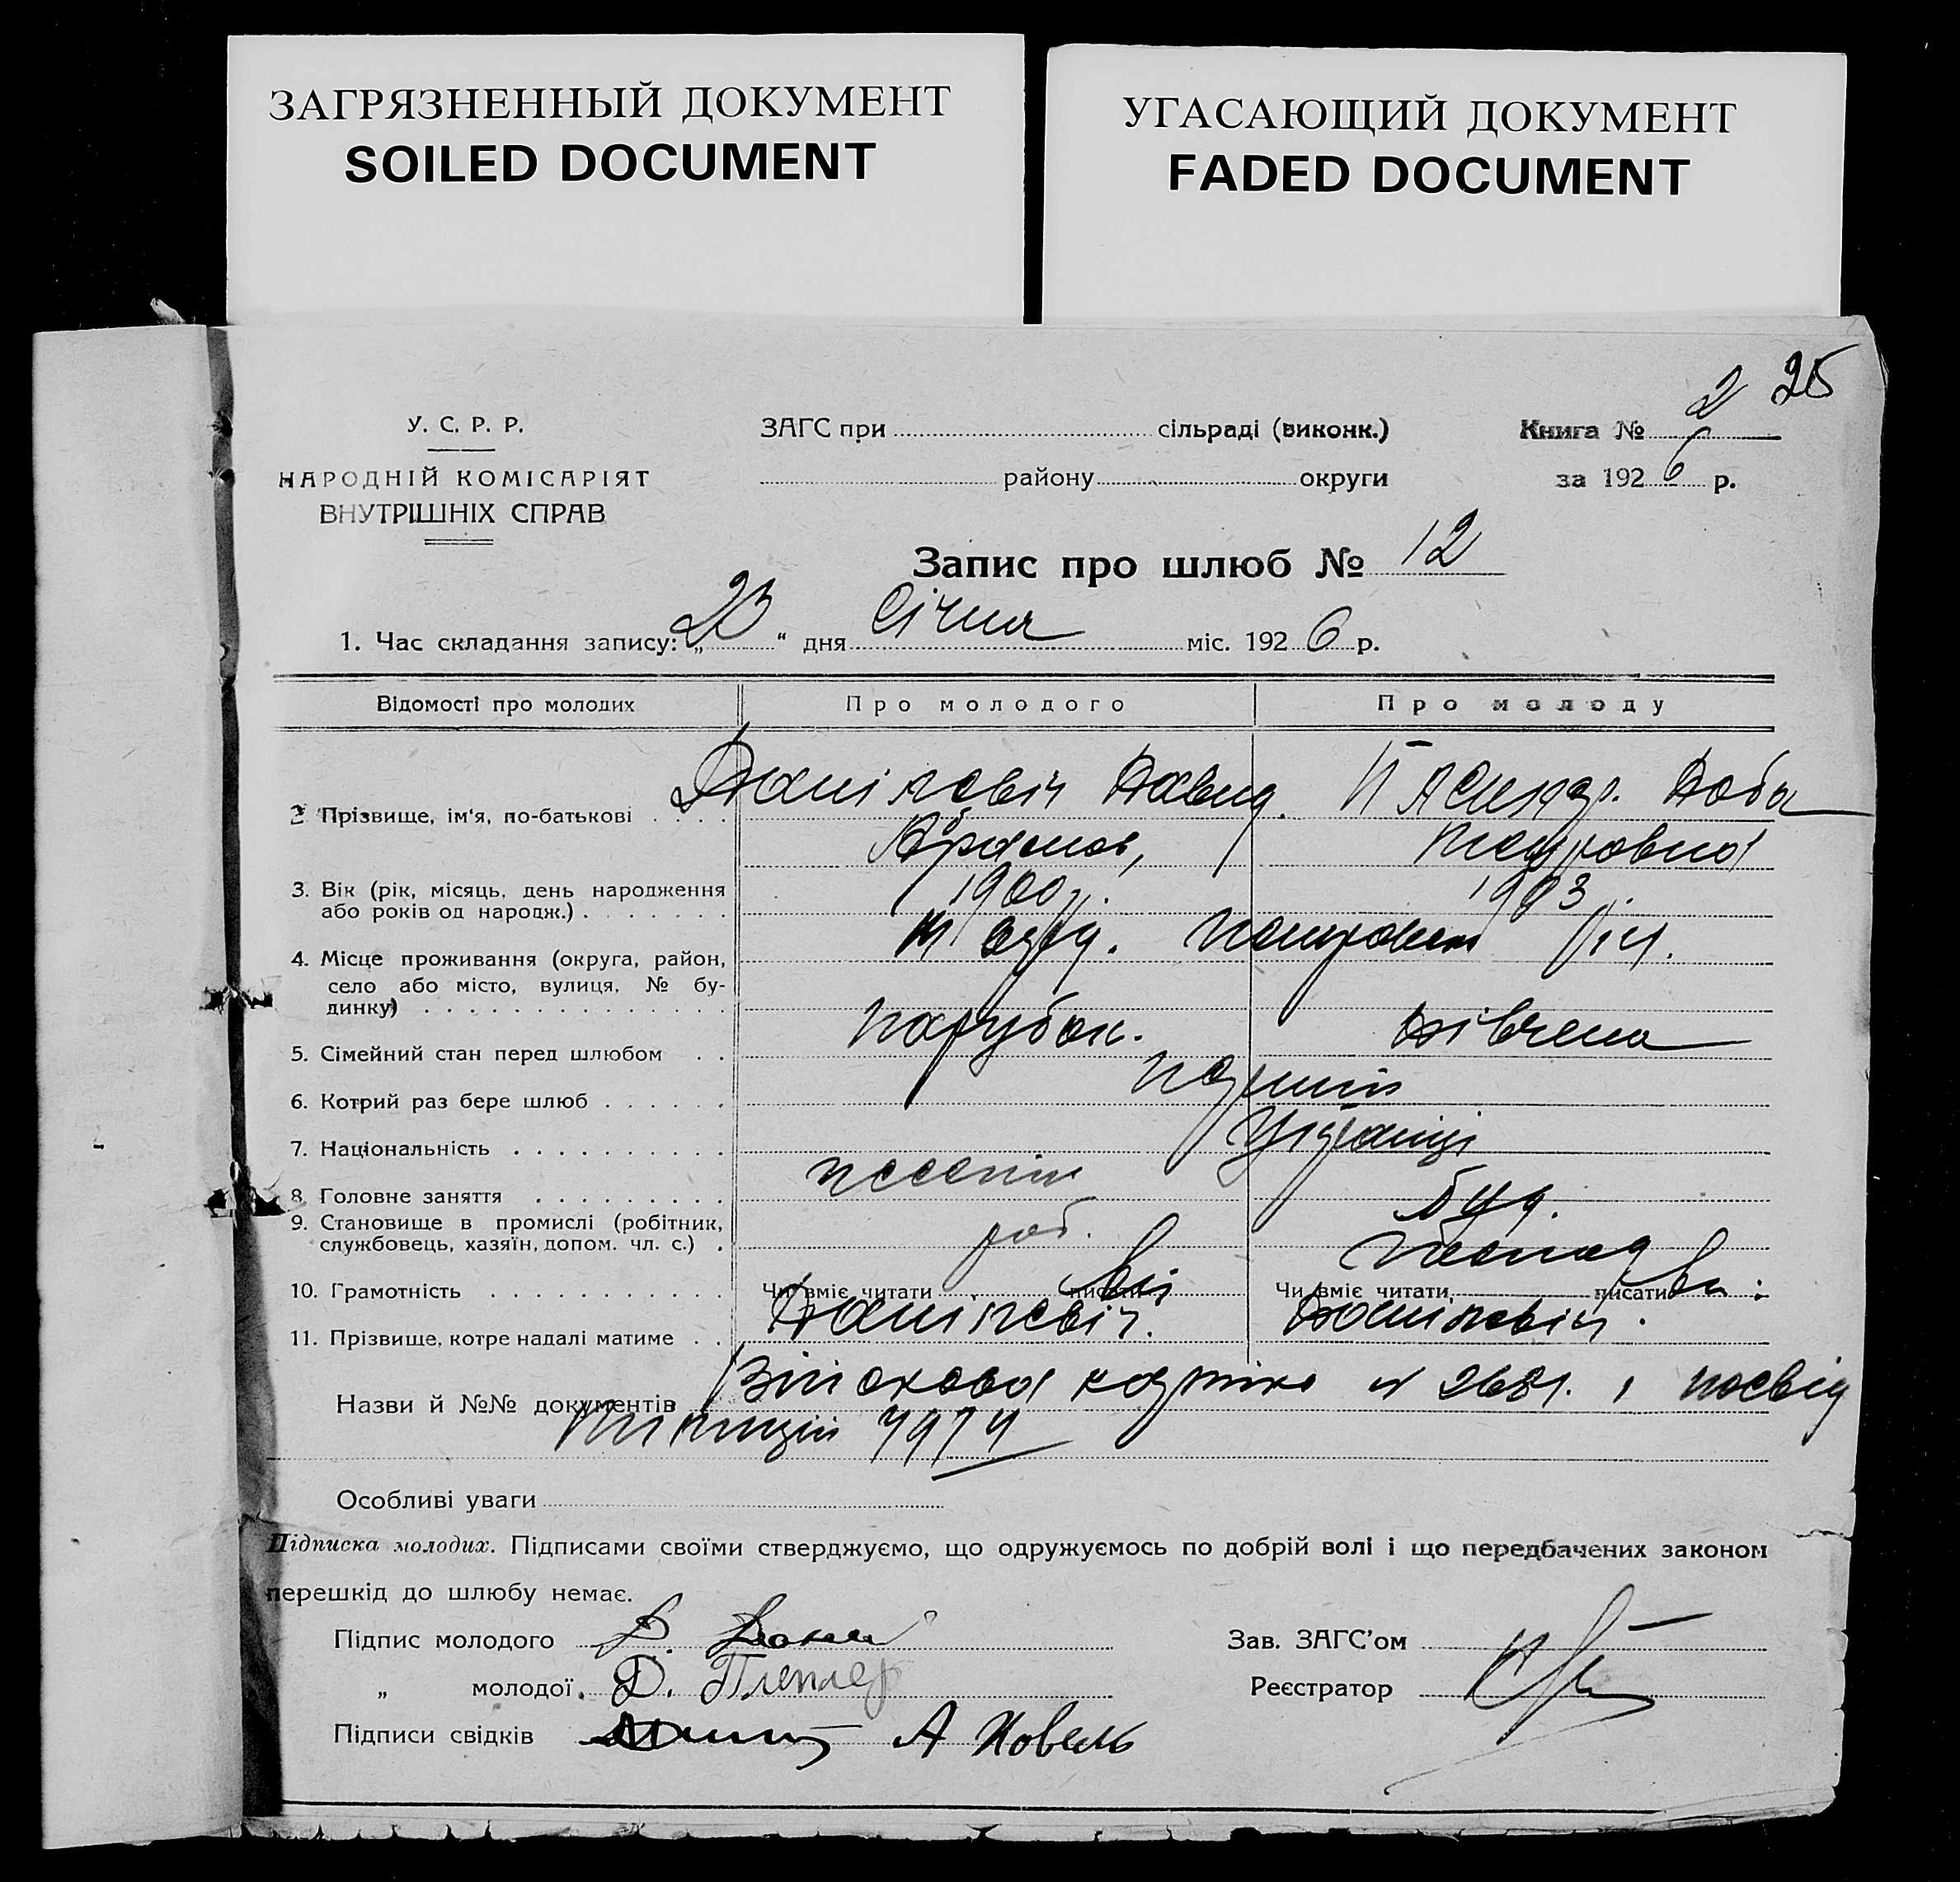 ЗАГРЯЗНЕННЫЙ ДОКУМЕНТ
SOILED DOCUMENT
УГАСАЮЩИЙ ДОКУМЕНТ
FADED DOCUMENT
25
У. С. Р. Р.
НАРОДНІЙ КОМІСАРІЯТ
ВНУТРІШНІХ СПРАВ
ЗАГС при сільраді (виконк.)
району округи
Книга № 2
за 1926 р.
Запис про шлюб № 12
1. Час складання запису: „23“ дня Січня міс. 1926 р.
Відомості про молодих Про молодого Про молоду
2 Прізвище, ім'я, по-батькові Данілевіч Давид Доба
Абрамов,
3. Вік (рік, місяць, день народження 1900 р. 1903
або років од народж.)
4. Місце проживання (округа, район,
село або місто, вулиця, № бу-
динку)
5. Сімейний стан перед шлюбом парубок. дівчена
6. Котрий раз бере шлюб
7. Національність
8. Головне заняття
9. Становище в промислі (робітник, роб.
службовець, хазяїн, допом. чл. с.)
10. Грамотність Чи вміє читати писати Чи вміє читати, писати
11. Прізвище, котре надалі матиме Данілевіч. Данілевіч.
Назви й №№ документів Військова картка № 2681. і посвід
міліції 7974
Особливі уваги
Підписка молодих. Підписами своїми стверджуємо, що одружуємось по добрій волі і що передбачених законом
перешкід до шлюбу немає.
Підпис молодого
„ молодої Д.
Підписи свідків А Ковель
Зав. ЗАГС'ом
Реєстратор